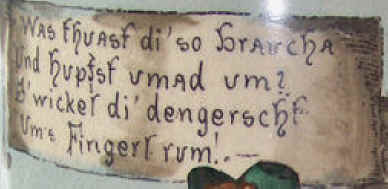 Was thuast di' so braucha
Und hupfst umad um?
D' wickelt di' dengerscht
Um's Fingerl rum!.—